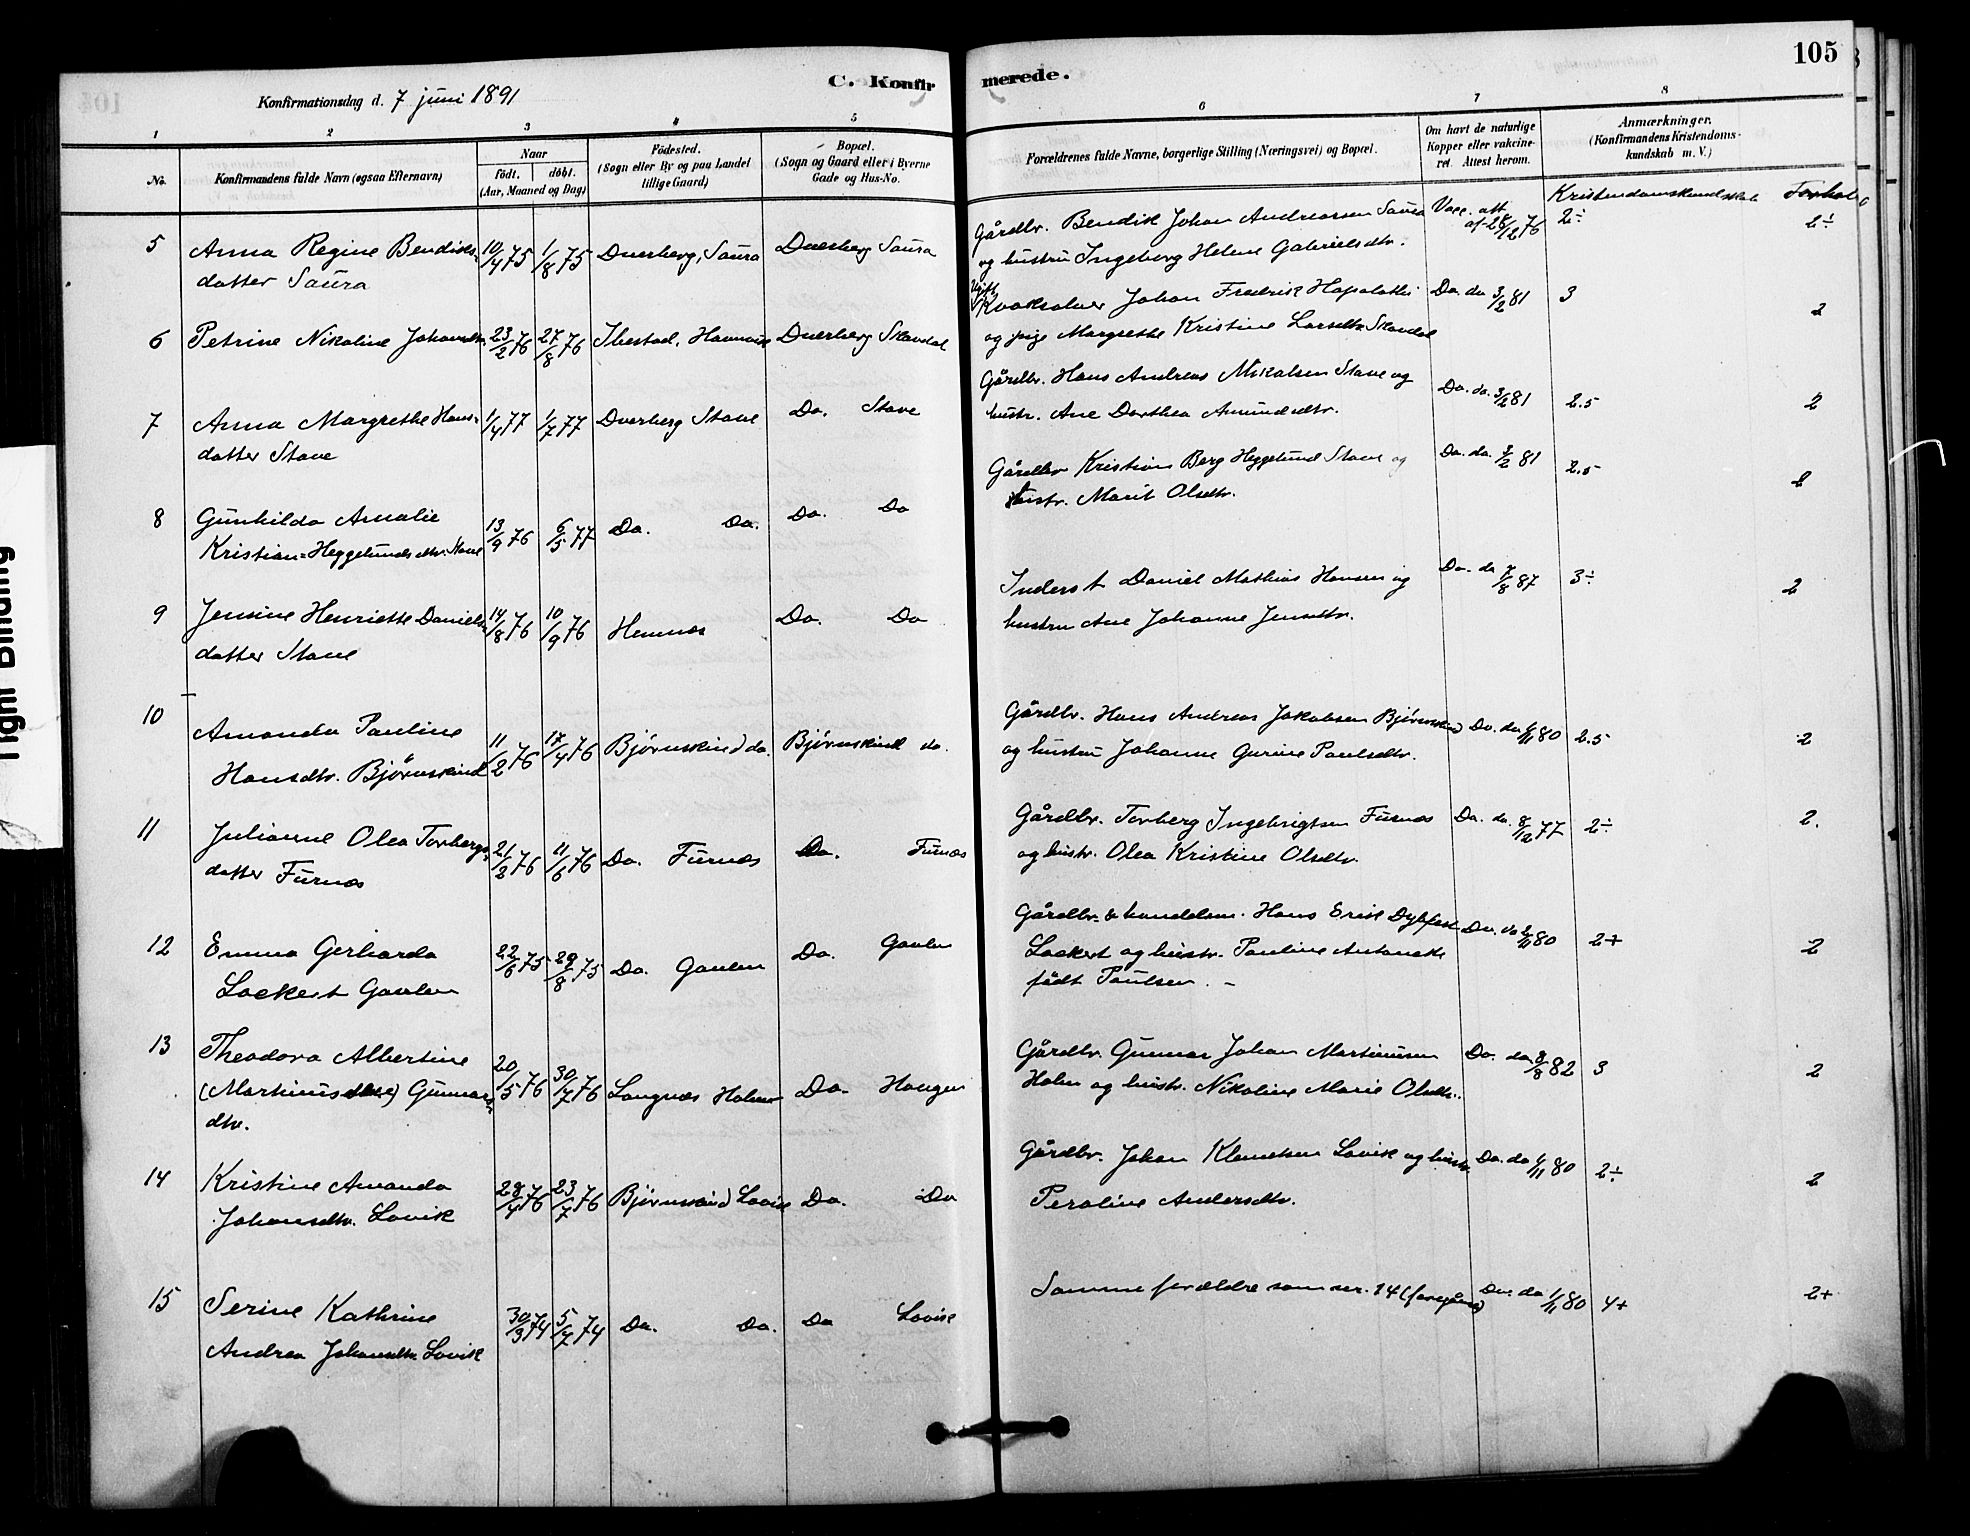 105
C. Konfirmerede.
Konfirmationsdag d. 7 juni 1891
1 2 3 4 5 6 7 8
No. Konfirmandens fulde Navn (ogsaa Efternavn) Naar født. døbt. (Aar, Maaned og Dag) Fødested. (Sogn eller By og paa Landet tillige Gaard) Bopæl. (Sogn og Gaard eller i Byerne Gade og Hus-No. Forældrenes fulde Navne, borgerlige Stilling (Næringsvei) og Bopæl. Om havt de naturlige Kopper eller vakcineret. Attest herom. Anmærkninger. (Konfirmandens Kristendomskundskab m. V.)
Kristendomskundskab Forhold
5 Anna Regine Bendiks- 10/4 75 1/8 75 Dverberg, Saura Dverberg Saura Gårdbr. Bendik Johan Andreassen Saura Vacc. att. af 28/12 76 2÷ 2÷
datter Saura og hustru Ingeborg Helene Gabrielsdtr.
6 Petrine Nikoline Johansdtr. 23/2 76 27/8 76 Ibestad, Hamnvik Dverberg Skavdal Ugift Kvaksalver Johan Fredrik Hapalathi Do. do 3/2 81 3 2
og pige Margrethe Kristine Larsdtr. Skavdal
7 Anna Margrethe Hans- 1/4 77 1/7 77 Dverberg Stave Do. Stave Gårdbr. Hans Andreas Nikalsen Stave og Do. do. 3/2 81 2.5 2
datter Stave hustr. Ane Dorthea Amundsdtr.
8 Gunhilda Amalie 13/9 76 6/5 77 Do. Do. Do. Do Gårdbr Kristian Berg Heggelund Stave og Do. do. 3/2 81 2.5 2
Kristian=Heggelundsdtr. Stave hustr. Marit Olsdtr.
9 Jensine Henriette Daniels- 14/8 76 10/9 76 Hemnæs Do. Do Inderst Daniel Mathias Hansen og Do. do 7/8 87 3÷ 2
datter Stave hustru Ane Johanne Jensdtr.
10 Amanda Pauline 11/2 76 17/4 76 Bjørnskind do. Bjørnskind do. Gårdbr. Hans Andreas Jakobsen Bjørnskind Do. do 1/11 80 2.5 2
Hansdtr. Bjørnskind og hustru Johanne Gurine Paulsdtr.
11 Julianne Olea Torbergs- 21/2 76 11/6 76 Do. Furnæs Do. Furnæs Gårdbr. Torberg Ingebrigtsen Furnæs Do. do. 8/12 77 2÷ 2.
datter Furnæs og hustr. Olea Kristine Olsdtr.
12 Emma Gerharda 22/6 75 29/8 75 Do. Gavlen Do. Gavlen Gårdbr. & handelsm. Hans Erik Dybfest Do. do 80 2+ 2
Lockert Gavlen Lockert og hustr. Pauline Antonette
født Paulsen. –
13 Theodora Albertine 20/5 76 30/7 76 Langnæs Holm Do. Haugen Gårdbr. Gunnar Johan Martinusen Do. do 8/8 82 3 2
(Martinusdtr) Gunnars- Holm og hustr. Nikoline Marie Olsdtr.
dtr.
14 Kristine Amanda 28/4 76 23/7 76 Bjørnskind Lovik Do. Do Gårdbr. Johan Klemetsen Lovik og hustr. Do. do 1/11 80 2÷ 2
Johansdtr. Lovik Peroline Andersdtr.
15 Serine Kathrine 30/3 74 5/7 74 Do. Do. Do Lovik Samme forældre som nr. 14 (foregående) Do. do 1/11 80 4+ 2+
Andrea Johansdtr. Lovik
Tight Binding